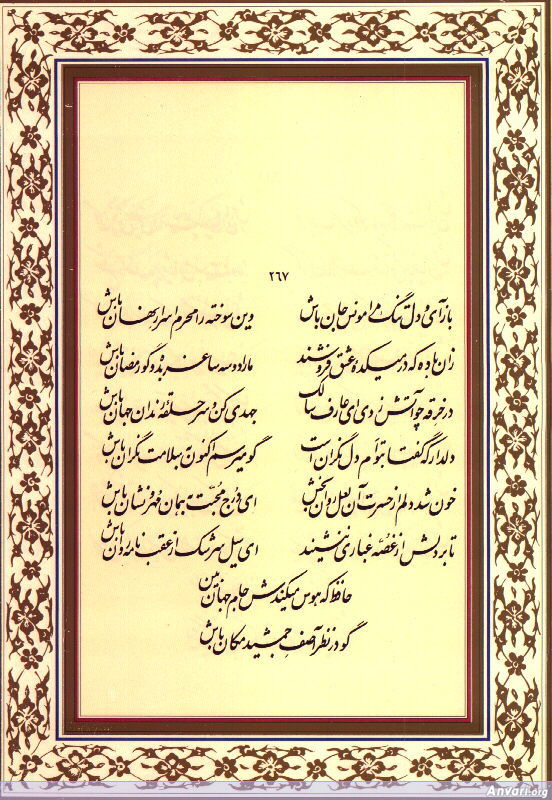 ۲۶۷
بازآی و دل تنگ مرا مونس جان باش وین سوخته را محرم اسرار نهان باش
زان باده که در میکده عشق فروشند ما را دو سه ساغر بده و گو رمضان باش
در خرقه چو آتش زدی ای عارف سالک جهدی کن و سرحلقه رندان جهان باش
دلدار که گفتا بتوام دل نگران است گو میرسم اکنون به سلامت نگران باش
خون شد دلم از حسرت آن لعل روان بخش ای درج محبت به همان مهر و نشان باش
تا بر دلش از غصه غباری ننشیند ای سیل سرشک از عقب نامه روان باش
حافظ که هوس میکندش جام جهان بین
گو در نظر آصف جمشید مکان باش
Anvari.org